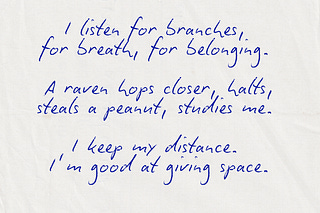 I listen for branches,
for breath, for belonging.
A raven hops closer, halts,
steals a peanut, studies me.
I keep my distance.
I'm good at giving space.